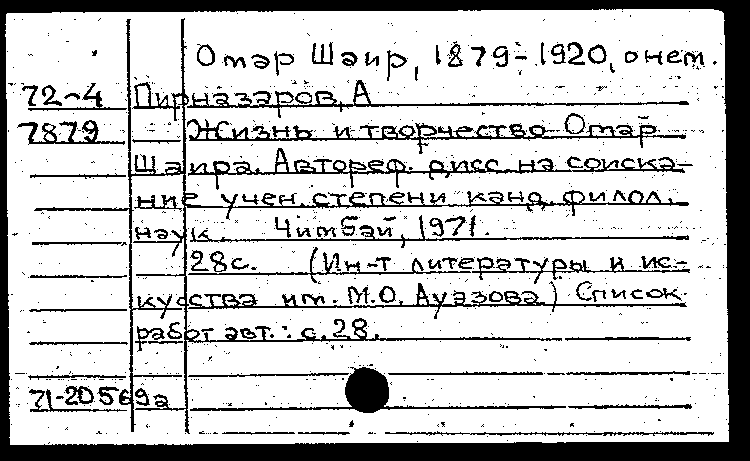 Омар Шаир, 1879-1920, о нем.
72-4 Пирназаров, А
7879 Жизнь и творчество Омар
Шаира. Автореф. дисс. на соиска-
ние учен. степени канд. филол.
наук. Чимбай, 1971.
28с. (Ин-т литературы и ис-
кусства им. М.О. Ауэзова) Список
работ авт.: с. 28.
71-20569а